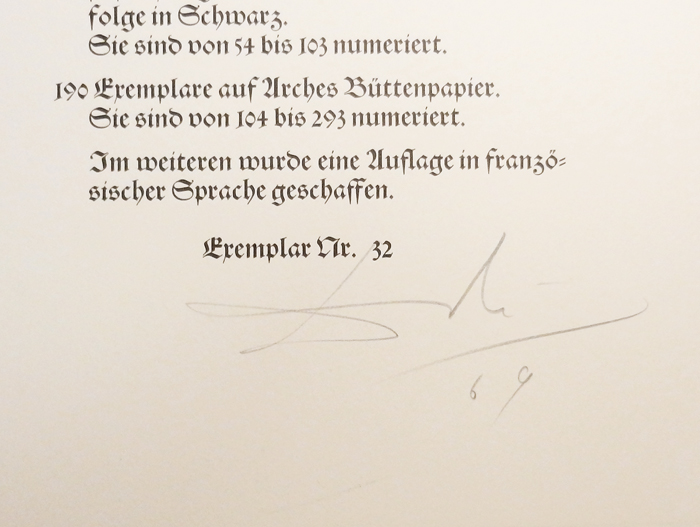 folge in Schwarz.
Sie sind von 54 bis 103 numeriert.
190 Exemplare auf Arches Büttenpapier.
Sie sind von 104 bis 293 numeriert.
Im weiteren wurde eine Auflage in franzö⸗
sischer Sprache geschaffen.
Exemplar Nr. 32
69